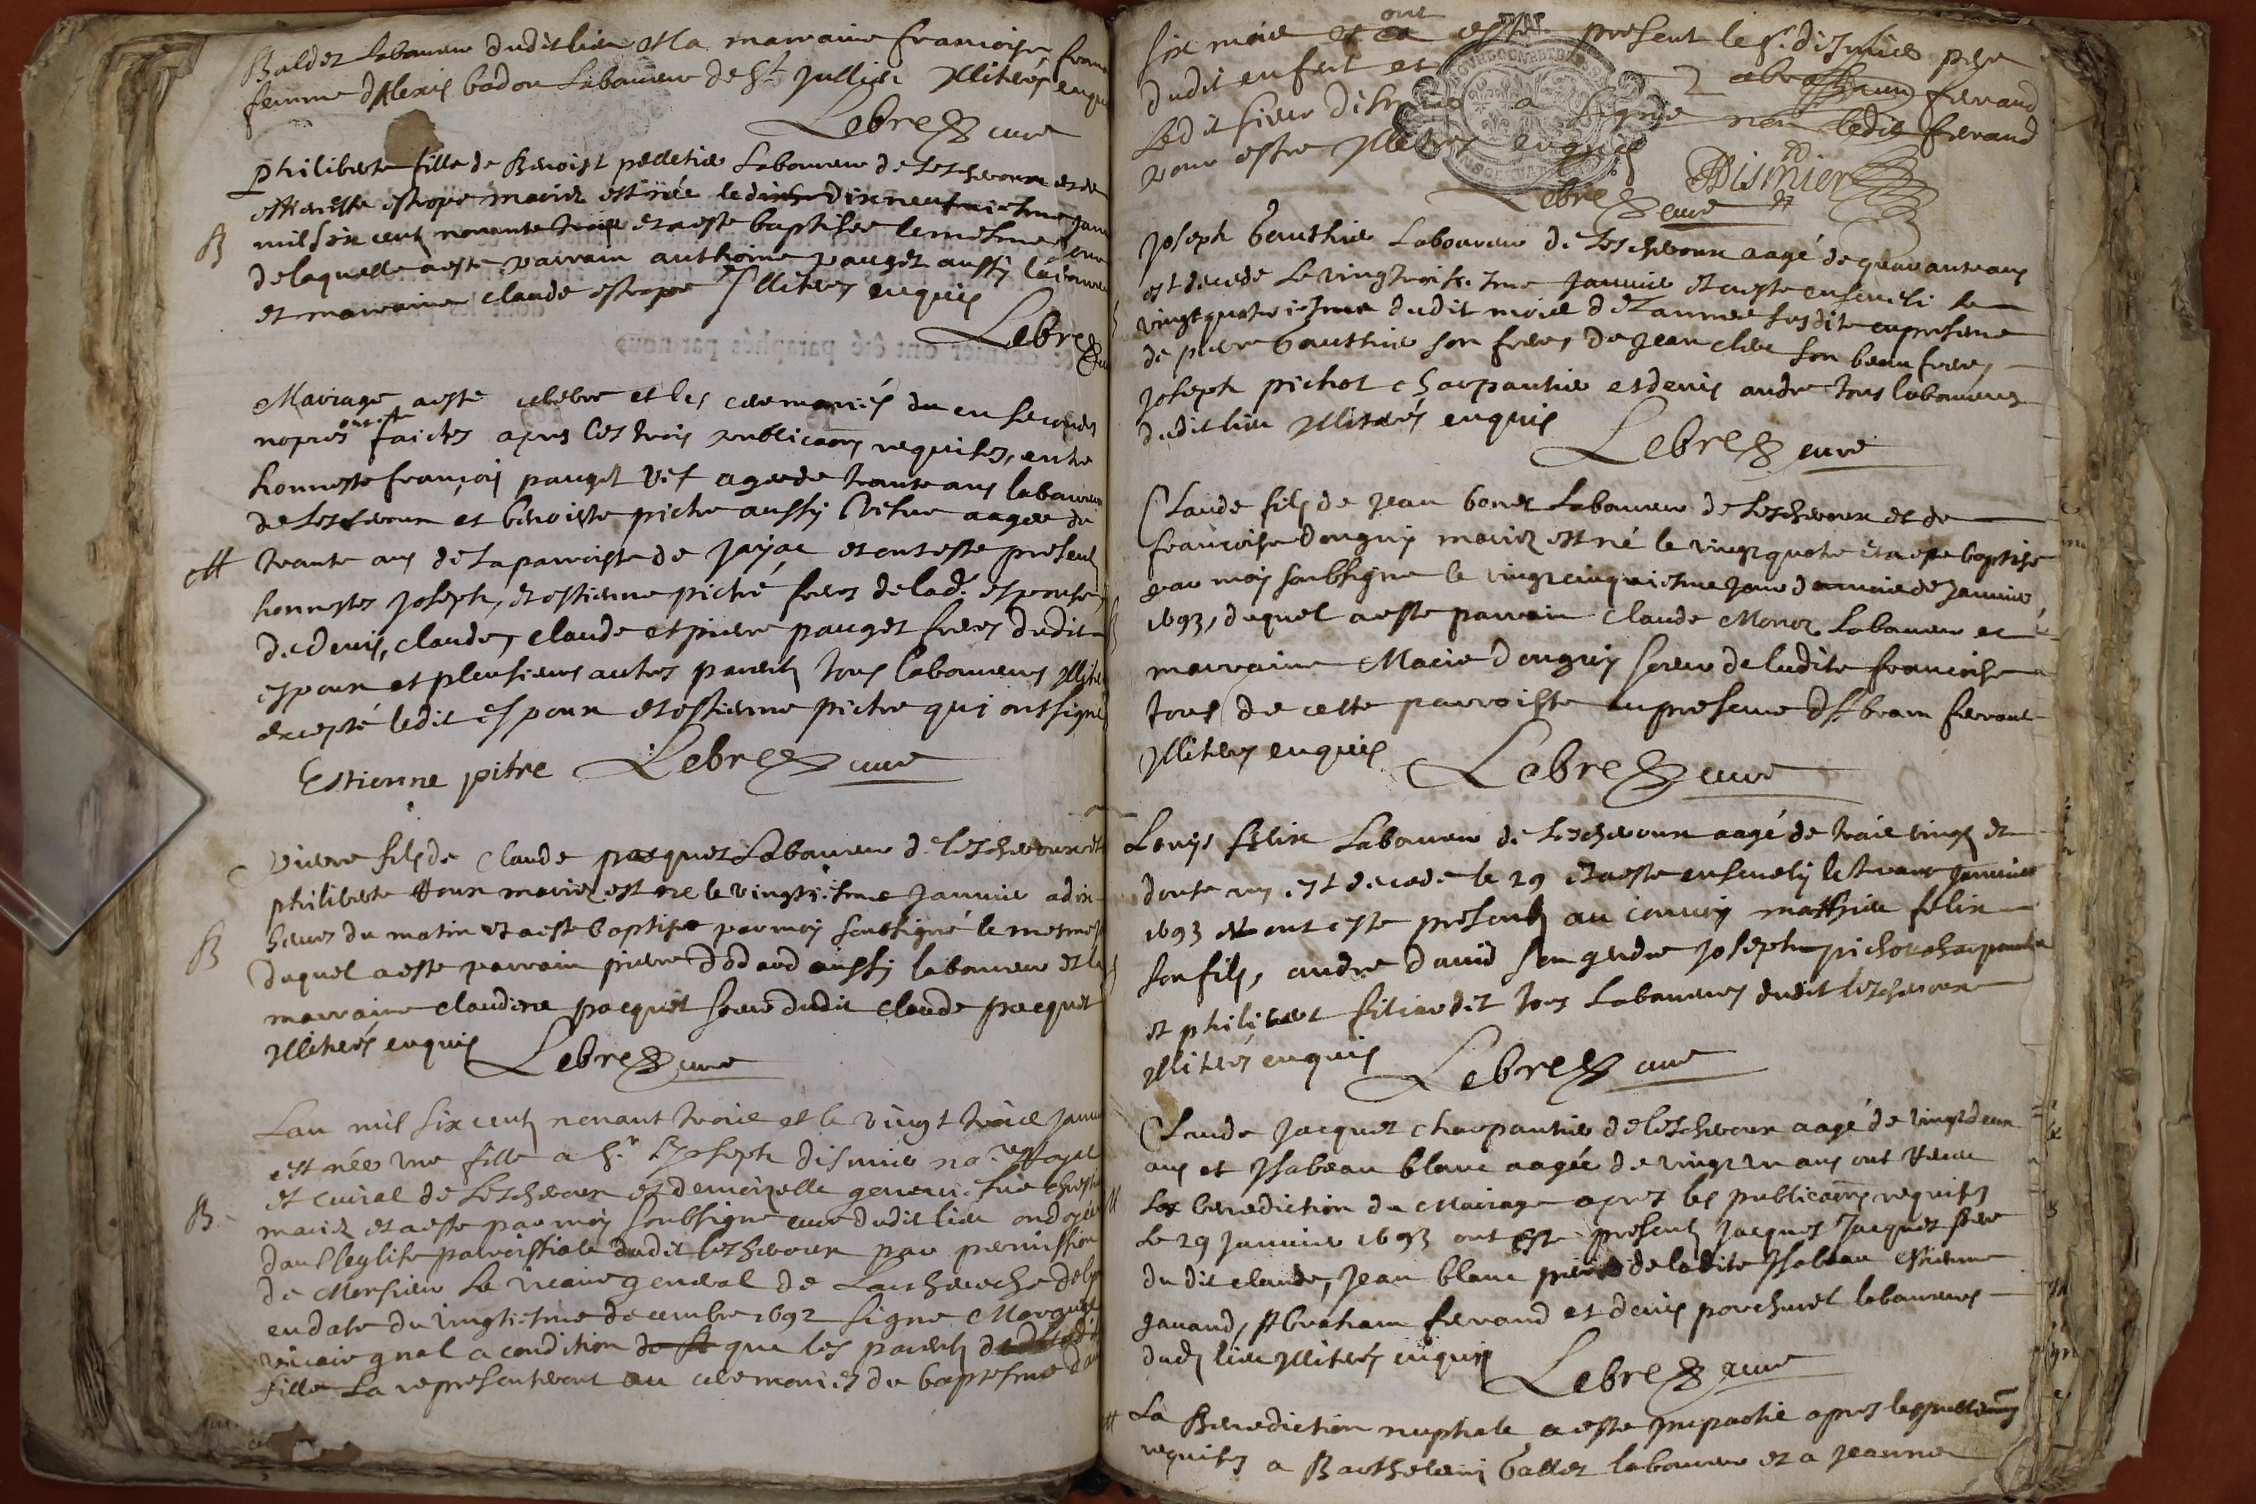 Baldet laboureur dudit lieu et la marraine francoise
femme d'Alexis badon laboureur de St Jullien Illiterés enquis
Lebrez curé
philiberte fille de Benoist pelletier laboureur de Lescheroux et de
estiennette mariez est née le dixneufviesme
B
mil six cent nonante trois et a esté baptisee le mesme jour
de laquelle a esté parrain anthoine pauget aussy laboureur
et marraine claude Illiteres enquis
Lebrez
Mariage a esté celebré et les ceremonies du en secondes
nopces ont esté faictes apres les trois publicaons requises, entre
honneste françois pauget vef agee de trante ans laboureur
de Lescheroux et benoiste pitre aussy vefve aagee de
M
trante ans de la parroisse de Jayac et ont esté presents
honnestes Joseph, et estienne pitre freres de lad. espouse,
de denis, claude, claude et pierre pauget freres dudit
espoux et plusieurs autres parents tous laboureurs Illite
excepté ledit espoux et estienne pitre qui ont signé
Estienne pitre Lebrez curé
Pierre fils de Claude pacquet Laboureur de lescheroux et
philiberte Roux mariez est né le vingtiesme Janvier a dix
B
heures du matin et a esté baptisé par moy soubsigné le mesme
duquel a esté parrain pierre dodard aussy laboureur et la
marraine claudine pacquet soeur dudit claude pacquet
Illiterés enquis Lebrez curé
Lan mil six cents nonant trois et le vingt trois Janv
est née une fille a Sr. Joseph dismier no.re Royal
et curial de Lescheroux et demoizelle
B
mariez et a esté par moy soubsigné curé dudit lieu ondoyée
dans l'eglise parroissiale dudit lescheroux par permission
de Monsieur le vicaire general de Larchevesché de
en date du vingtiesme decembre 1692 signe
vicaire gnal a condition que les parents de
fille la representeront au ceremonies du baptesme dans
six mois et ont esté present le sr. dismier pere
dudit enfent et abraham ferand
Ledit sieur dismier a signé non ledit ferand
pour estre Illiterés enquis
Dismier
Lebrez curé
Joseph Gauthier Laboureur de Lescheroux aagé de quarante ans
est decede le vingtroisiesme Janvier et a esté enseveli le
vingtquatriesme dudit mois de Lannee susdite en presence
de pierre Gauthier son frere, de Jean cler son beau frere,
Joseph pichot charpantier et denis andre tous laboureurs
dudit lieu Illiterés enquis
Lebrez curé
Claude fils de Jean bonet Laboureur de Lescheroux et de
francoise Donguy mariez est né le vingtquatre et a esté baptisé
par moy soubsigne le vingtcinquiesme jour du mois de Janvier
1693, duquel a esté parrain Claude Monoz Laboureur et
marraine Marie Donguy soeur de ladite francoise
tous de cette parroisse en presence d'Abram ferrand
Illiteres enquis Lebrez curé
Louys felix Laboureur de Lescheroux aagé de trois vingt et
douse ans est decedé le 29 et a esté ensevely le trante Janvier
1693 et ont esté presents au convoy matthieu felix
son fils, andre david son gendre Joseph pichot charpantier
et philibert dit tous Laboureurs dudit lescheroux
Illiterés enquis Lebrez curé
Claude Jacquet charpantier de lescheroux aagé de vingtdeux
ans et Isabeau blanc aagée de vingt un ans ont receu
M
la benediction du Mariage apres les publicaons requises
Le 29 Janvier 1693 ont esté presents Jacques Jacquet frere
du dit claude, Jean blanc de ladite Isabeau estienne
gavand, Abraham ferrand et denis porcheret laboureurs
dud lieu Illiterés enquis Lebrez curé
M
La Benediction nuptiale a esté impartie apres les
requises a Barthelemi Gallet laboureur et a Jeanne